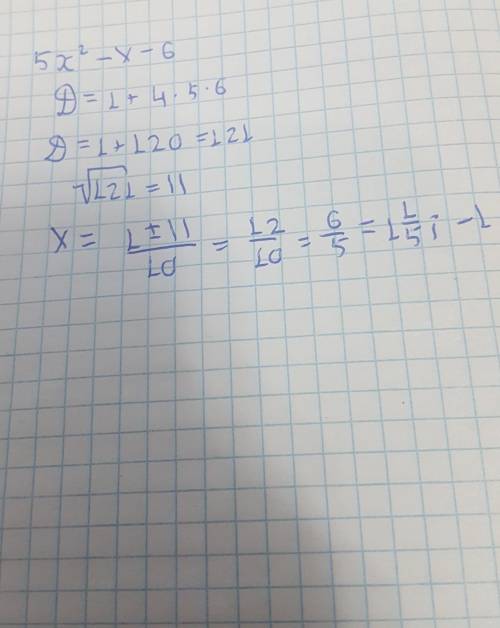 5x² - x - 6
D = 1 + 4 · 5 · 6
D = 1 + 120 = 121
√121 = 11
x = (1 ± 11)/10 = 12/10 = 6/5 = 1 1/5; -1